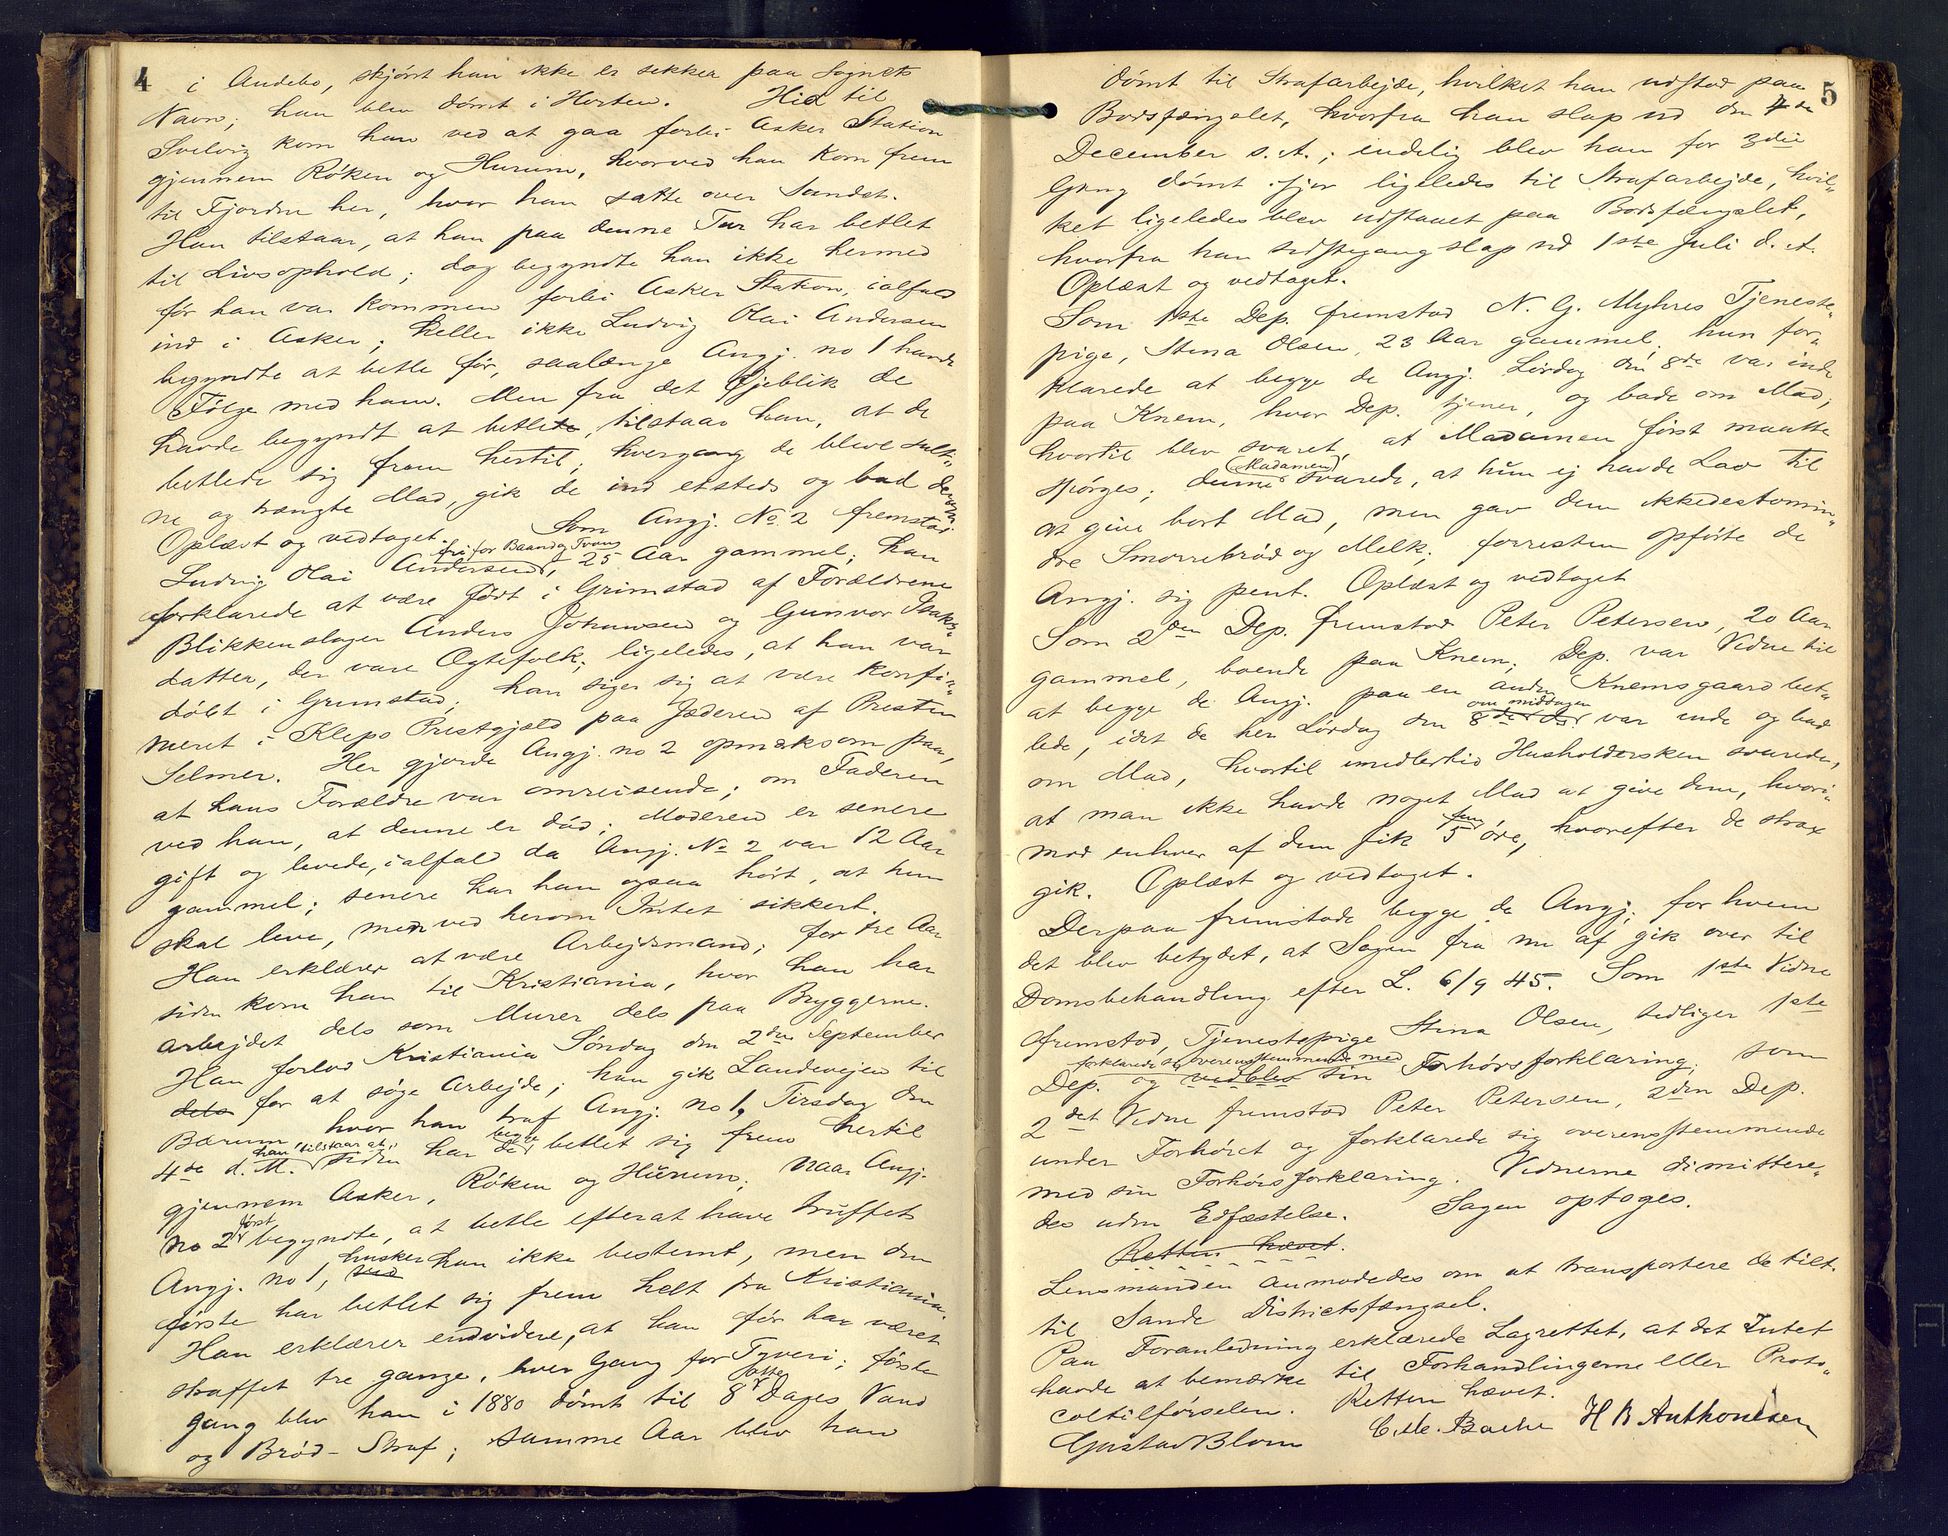 4
i Andebo, skjønt han ikke er sikker paa Sognets
Navn; han blev dømt i Horten. Hid til
Svelvig kom han ved at gaa forbi Asker Station
gjennem Røken og Hurum, hvorved han kom frem
til Fjorden her, hvor han satte over Sundet.
Han tilstaar, at han paa denne Tur har betlet
til Livsophold; dog begyndte han ikke hermed
før han var kommen forbi Asker Station, ialfald
ind i Asker; heller ikke Ludvig Olai Andersen
begyndte at betle før, saalænge Angj. no 1 havde
Følge med ham. Men fra det Øjeblik de
havde begyndt at betle, tilstaar han, at de
betlede sig frem hertil; hvergang de bleve sulti-
ne og trængte Mad, gik de ind etsteds og bad derom.
Oplæst og vedtaget. Som Angj. No. 2 fremstod
fri for Baand og Tvang
Ludvig Olai Andersen, 25 Aar gammel; han
forklarede at være født i Grimstad af Forældrene
Blikkenslager Anders Johansen og Gunvor Isaks-
datter, der vare Ægtefolk; ligeledes, at han var
døbt i Grimstad; han siger sig at være konfir-
meret i Klepo Prestgjæld paa Jæderen af Presten
Selmer. Her gjorde Angj. no 2 opmærksom paa,
at hans Forældre var omreisende; om Faderen
ved han, at denne er død; Moderen er senere
gift og levede, ialfald da Angj. No 2 var 12 Aar
gammel; senere har han ogsaa hørt, at hun
skal leve, men ved herom Intet sikkert.
Han erklærer at være Arbejdsmand; for tre Aar
siden kom han til Kristiania, hvor han har
arbejdet dels som Murer dels paa Bryggerne.
Han forlod Kristiania Søndag den 2den September
dels for at søge Arbejde; han gik Landevejen til
Bærum, hvor han traf Angj. no 1, Tirsdag den
han tilstaar at begge
4de d. M. siden har de betlet sig frem hertil
gjennem Asker, Røken og Hurum; naar Angj.
først
no 2 begyndte, at betle efterat have truffet
husker
Angj. no 1, ved han ikke bestemt, men den
første har betlet sig frem helt fra Kristiania.
Han erklærer endvidere, at han før har været
straffet tre gange, hver Gang for Tyveri; første
otte
gang blev han i 1880 dømt til 8 Dages Vand
og Brød-Straf; samme Aar blev han
5
dømt til Strafarbejde, hvilket han udstod paa
Bodsfængelet, hvorfra han slap ud den 4de
December s. A.; endelig blev han for 3die
Gang dømt ifjor ligeledes til Strafarbejde, hvil-
ket ligeledes blev udstaaet paa Bodsfængslet,
hvorfra han sidstegang slap ud 1ste Juli d. A.
Oplæst og vedtaget.
Som 1ste Dep. fremstod N. G. Myhres Tjeneste-
pige, Stina Olsen, 23 Aar gammel; hun for-
klarede at begge de Angj. Lørdag den 8de var inde
paa Knem, hvor Dep. tjener, og bade om Mad;
hvortil blev svaret, at Madamen først maatte
(Madamen)
spørges; denne svarede, at hun ej havde Lov til
at give bort Mad, men gav dem ikkedestomin-
dre Smørrebrød og Melk; forresten opførte de
Angj. sig pent. Oplæst og vedtaget
Som 2den Dep. fremstod Peter Petersen, 20 Aar
gammel, boende paa Knem; Dep. var Vidne til
at begge de Angj. paa en anden Knemsgaard bet-
om middagen
lede, idet de her Lørdag den 8de ds var inde og bad
om Mad, hvortil imidlertid Husholdersken svarede,
at man ikke havde noget Mad at give dem, hvori-
fem
mod enhver af dem fik 5 øre, hvorefter de strax
gik. Oplæst og vedtaget.
Derpaa fremstode begge de Angj; for hvem
det blev betydet, at Sagen fra nu af gik over til
Domsbehandling efter L. 6/9 45. Som 1ste Vidne
fremstod, Tjenestepige Stina Olsen, tidligere 1ste
forklarede sig overensstemmende med
Dep. og vedblev sin Forhørsforklaring; som
2det Vidne fremstod Peter Petersen, 2den Dep.
under Forhøret og forklarede sig overensstemmende
med sin Forhørsforklaring. Vidnerne dimittere-
des uden Edfæstelse. Sagen optoges.
Retten hævet.
Lensmanden anmodedes om at transportere de tilt.
til Sande Districtsfængsel.
Paa Foranledning erklærede Lagrettet, at det Intet
havde at bemærke til Forhandlingerne eller Proto-
coltilførselen. Retten hævet.
Gustav Blom C. M. Bache H B Anthonisen